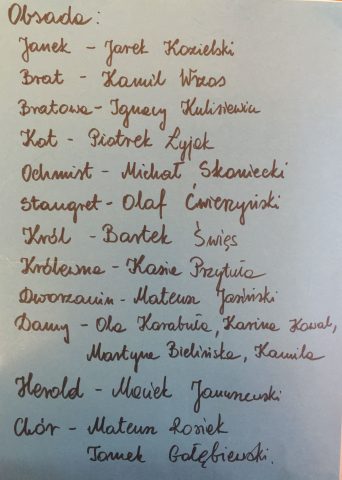 Obsada:
Janek - Jarek Kozielski
Brat - Kamil Wzos
Bratowa - Ignacy Kulisiewicz
Kot - Piotrek Łyjak
Ochmist - Michał Skaniecki
Stangret - Olaf Ćwierzyński
Król - Bartek Święs
Królewna - Kasia Przytuła
Dworzanin - Mateusz Jasiński
Damy - Ola Karabuła, Karina Kowal,
Martyna Bielińska, Kamila
Herold - Maciek Januszewski
Chór - Mateusz Łosiek
Tomek Gołębiewski.